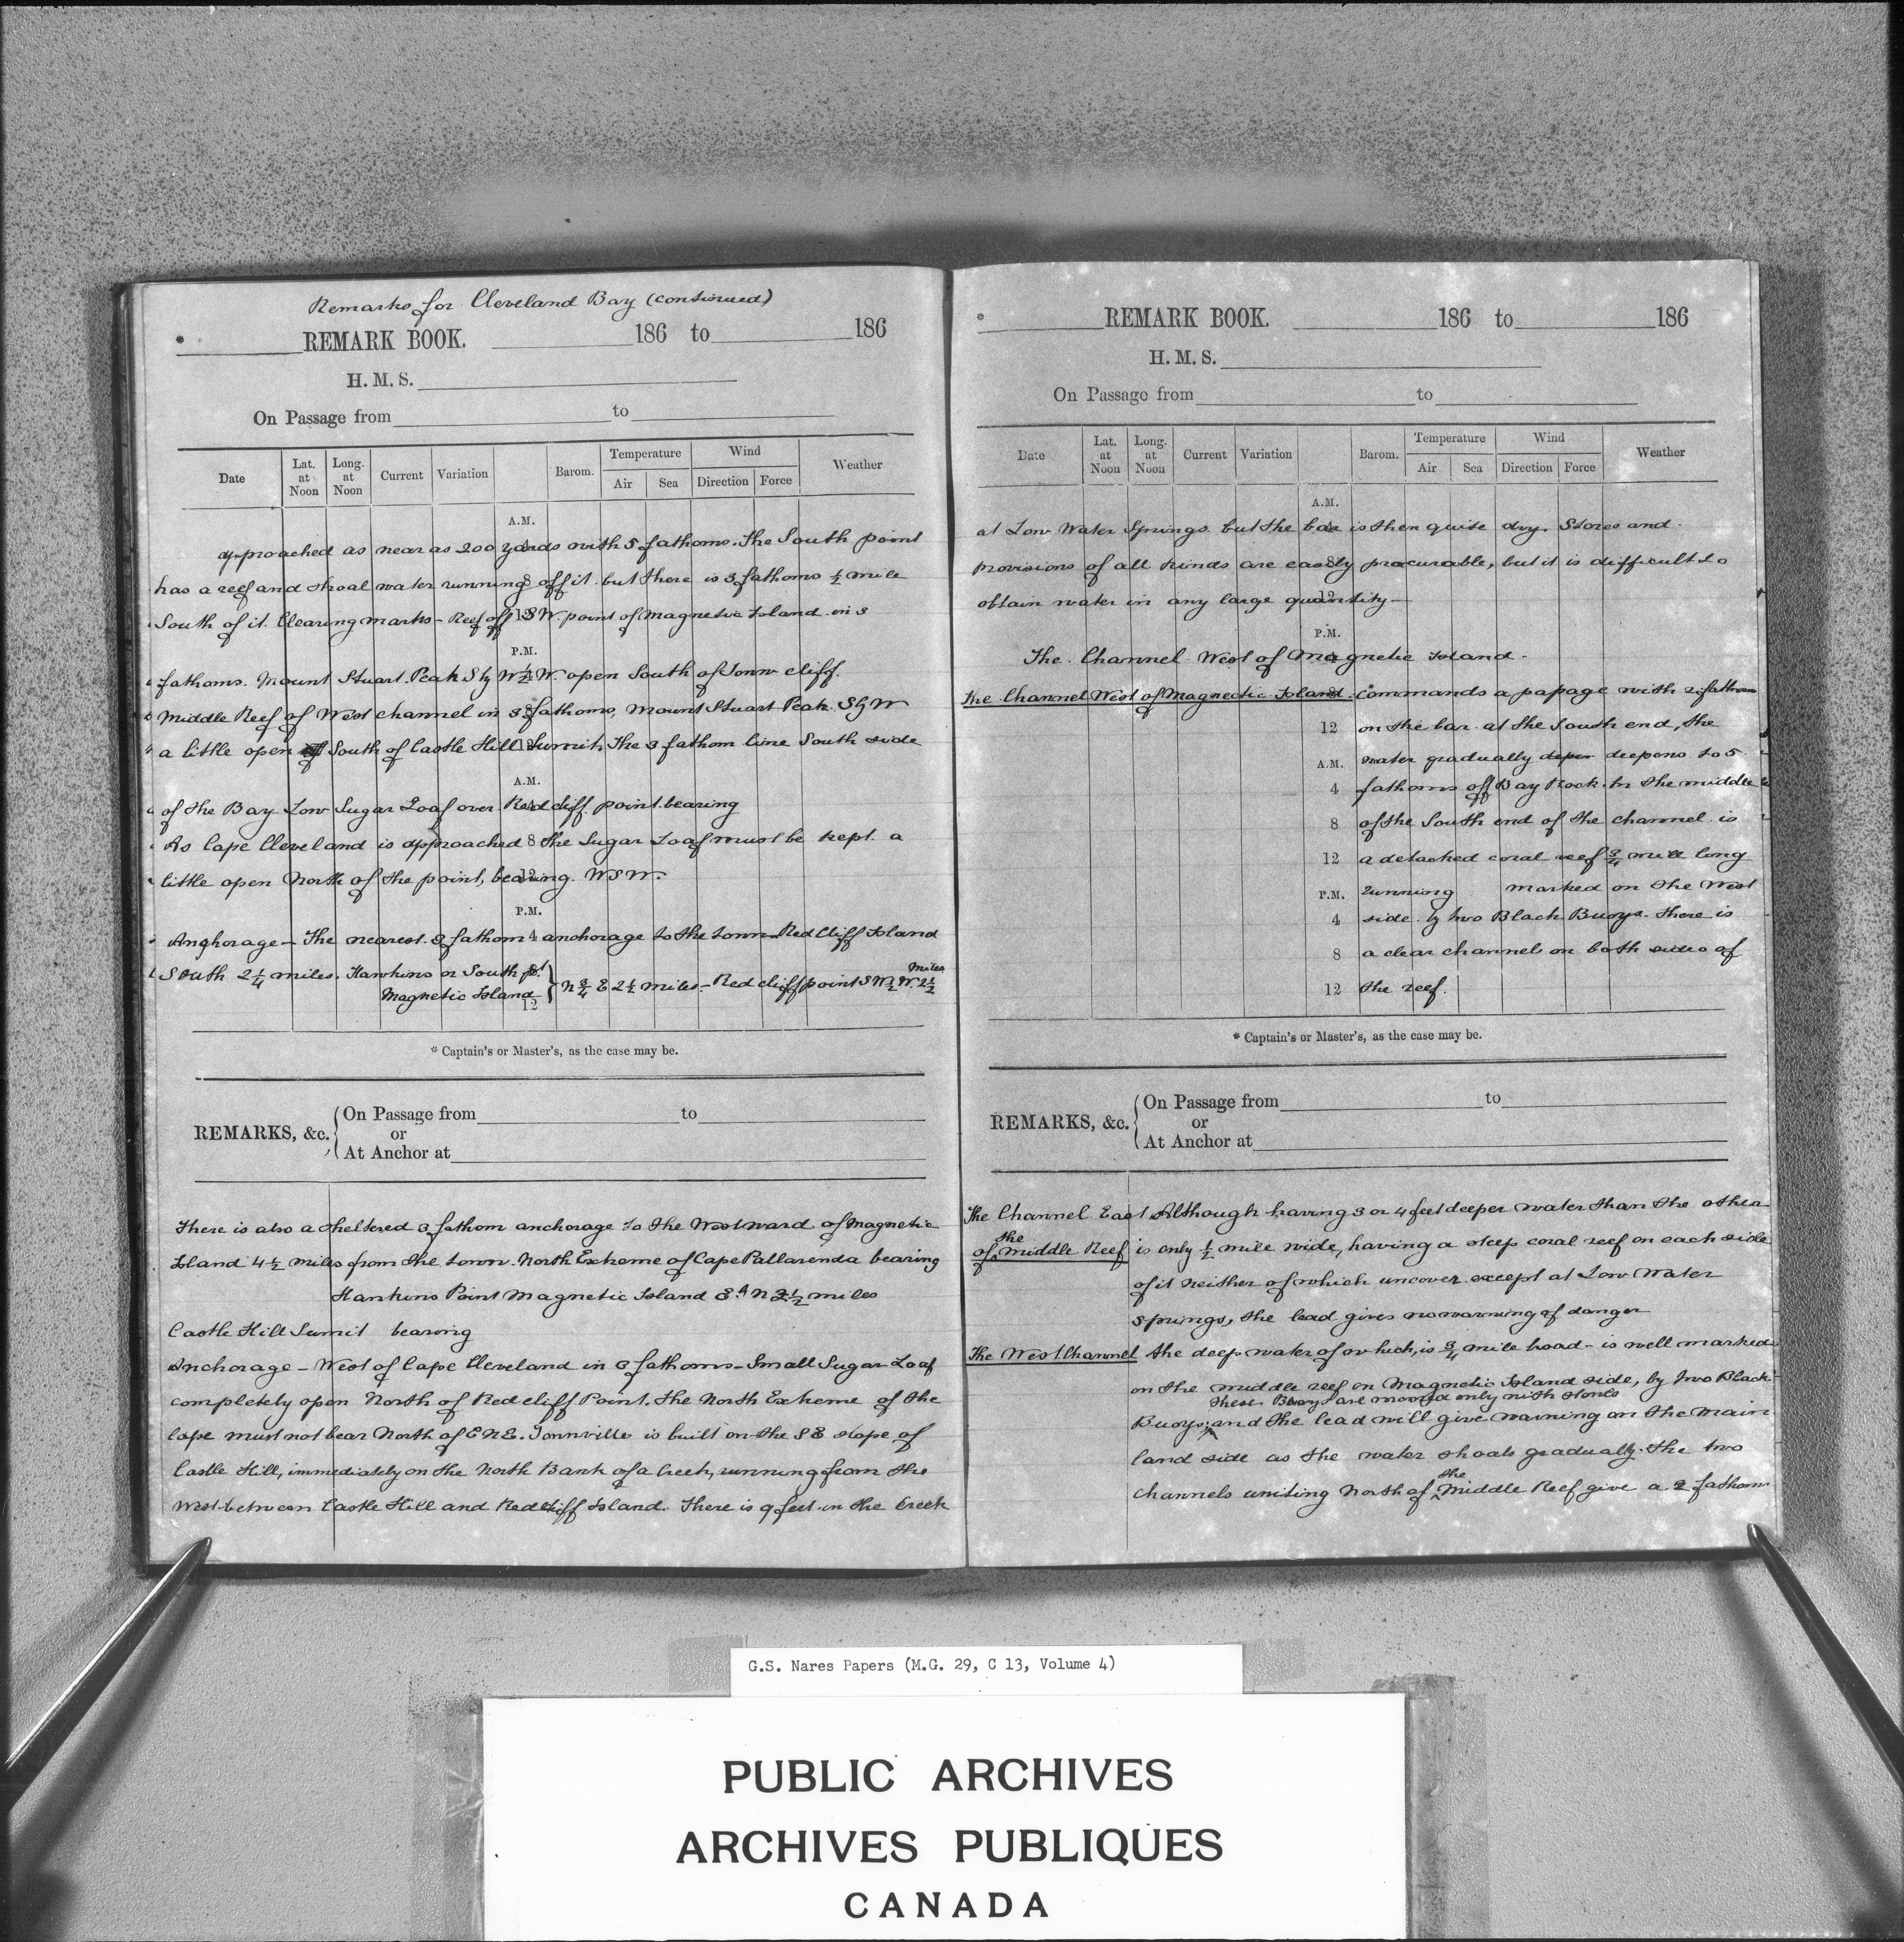 Remarks for Cleveland Bay (continued)
REMARK BOOK. 186 to 186
H. M. S.
On Passage from to
Date Lat. at Noon Long. at Noon Current Variation Barom. Temperature Air Sea Wind Direction Force Weather
A.M.
approached as near as 200 yards with 5 fathoms. The South point
has a reef and shoal water running off it. but there is 3 fathoms ½ mile
South of it. Clearing marks - Reef off SW. point of Magnetic Island in 3
P.M.
fathoms. Mount Stuart Peak S by W ½ W. open South of Town cliff.
Middle Reef of West channel in 3 fathoms, Mount Stuart Peak S by W
a little open of South of Castle Hill Sumit, The 3 fathom line South side
A.M.
of the Bay Low Sugar Loaf over Red cliff point bearing
As Cape Cleveland is approached 8 the Sugar Loaf must be kept a
little open North of the point, bearing. WSW.
P.M.
Anghorage - The nearest 3 fathom 4 anchorage to the town Red Cliff Island
South 2¼ miles. Hawkins or South pt Magnetic Island } N ¾ E 2½ miles - Red cliff point SW ½ W. 2½ Miles
12
* Captain's or Master's, as the case may be.
REMARKS, &c. { On Passage from to
or
At Anchor at
There is also a sheltered 3 fathom anchorage to the Westward of Magnetic
Island 4½ miles from the town. North Extreme of Cape Pallarenda bearing
Hankins Point Magnetic Island S.d N 2½ miles
Castle Hill Sumit bearing
Anchorage - West of Cape Cleveland in 3 fathoms - Small Sugar Loaf
completely open North of Redcliff Point. The North Extreme of the
Cape must not bear North of ENE. Townville is built on the SE slope of
Castle Hill, immediately on the North Bank of a Creek, running from the
West between Castle Hill and Redcliff Island. There is 9 feet in the Creek
REMARK BOOK. 186 to 186
H. M. S.
On Passage from to
Date Lat. at Noon Long. at Noon Current Variation Barom. Temperature Air Sea Wind Direction Force Weather
A.M.
at Low Water Springs but the bar is then quite dry. Stores and
provisions of all kinds are easily procurable, but it is difficult to
obtain water in any large quantity -
P.M.
The Channel West of Magnetic Island.
The Channel West of Magnectic Island. commands a passage with 2 fathoms
12 on the bar at the South end, the
A.M. water gradually deper deepens to 5
4 fathoms off Bay Rock. In the middle
8 of the South end of the channel is
12 a detached coral reef ¾ mile long
P.M. running marked on the West
4 side by two Black Buoys. There is
8 a clear channels on both sides of
12 the reef.
* Captain's or Master's, as the case may be.
REMARKS, &c. { On Passage from to
or
At Anchor at
The Channel East Although having 3 or 4 feet deeper water than the other
of the Middle Reef is only ½ mile wide, having a steep coral reef on each side
of it neither of which uncover except at Low Water
Springs, the lead gives no warning of danger
The West Channel the deep water of which, is ¾ mile broad - is well marked
on the middle reef on Magnetic Island side, by two Black
These Buoys are moored only with stones
Buoys; and the lead will give warning on the main
land side as the water shoals gradually. The two
channels uniting North of the Middle Reef give a 2 fathom
G.S. Nares Papers (M.G. 29, C 13, Volume 4)
PUBLIC ARCHIVES
ARCHIVES PUBLIQUES
CANADA